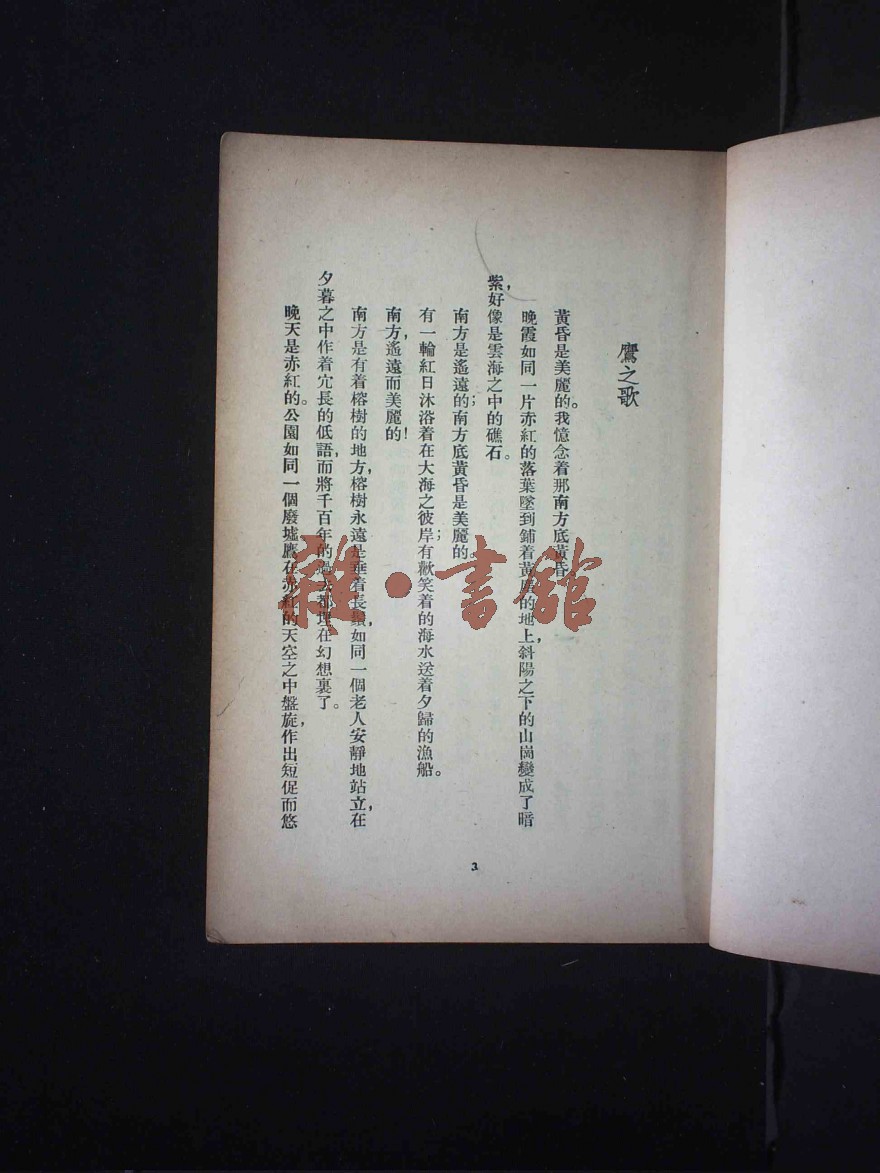 鷹之歌
黃昏是美麗的。我憶念着那南方底黃昏。
晚霞如同一片赤紅的落葉墜到鋪着黃 的地上，斜陽之下的山崗變成了暗
紫，好像是雲海之中的礁石。
南方是遙遠的；南方底黃昏是美麗的。
有一輪紅日沐浴着在大海之彼岸；有歡笑着的海水送着夕歸的漁船。
南方，遙遠而美麗的！
南方是有着榕樹的地方，榕樹永遠是垂着長鬚，如同一個老人安靜地站立，在
夕暮之中作着冗長的低語，而將千百年的過去都埋在幻想裏了。
晚天是赤紅的。公園如同一個廢墟。鷹在赤紅的天空之中盤旋，作出短促而悠
3
雜·書館